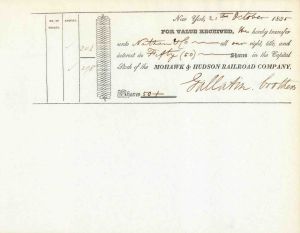 New York, 21st October 1835
NO. OF SHARES.
FOR VALUE RECEIVED, We hereby transfer
unto Nathan & Co all our right, title, and
interest in Fifty (50) Shares in the Capital
Stock of the MOHAWK & HUDSON RAILROAD COMPANY.
Gallatin Brothers
Shares 50